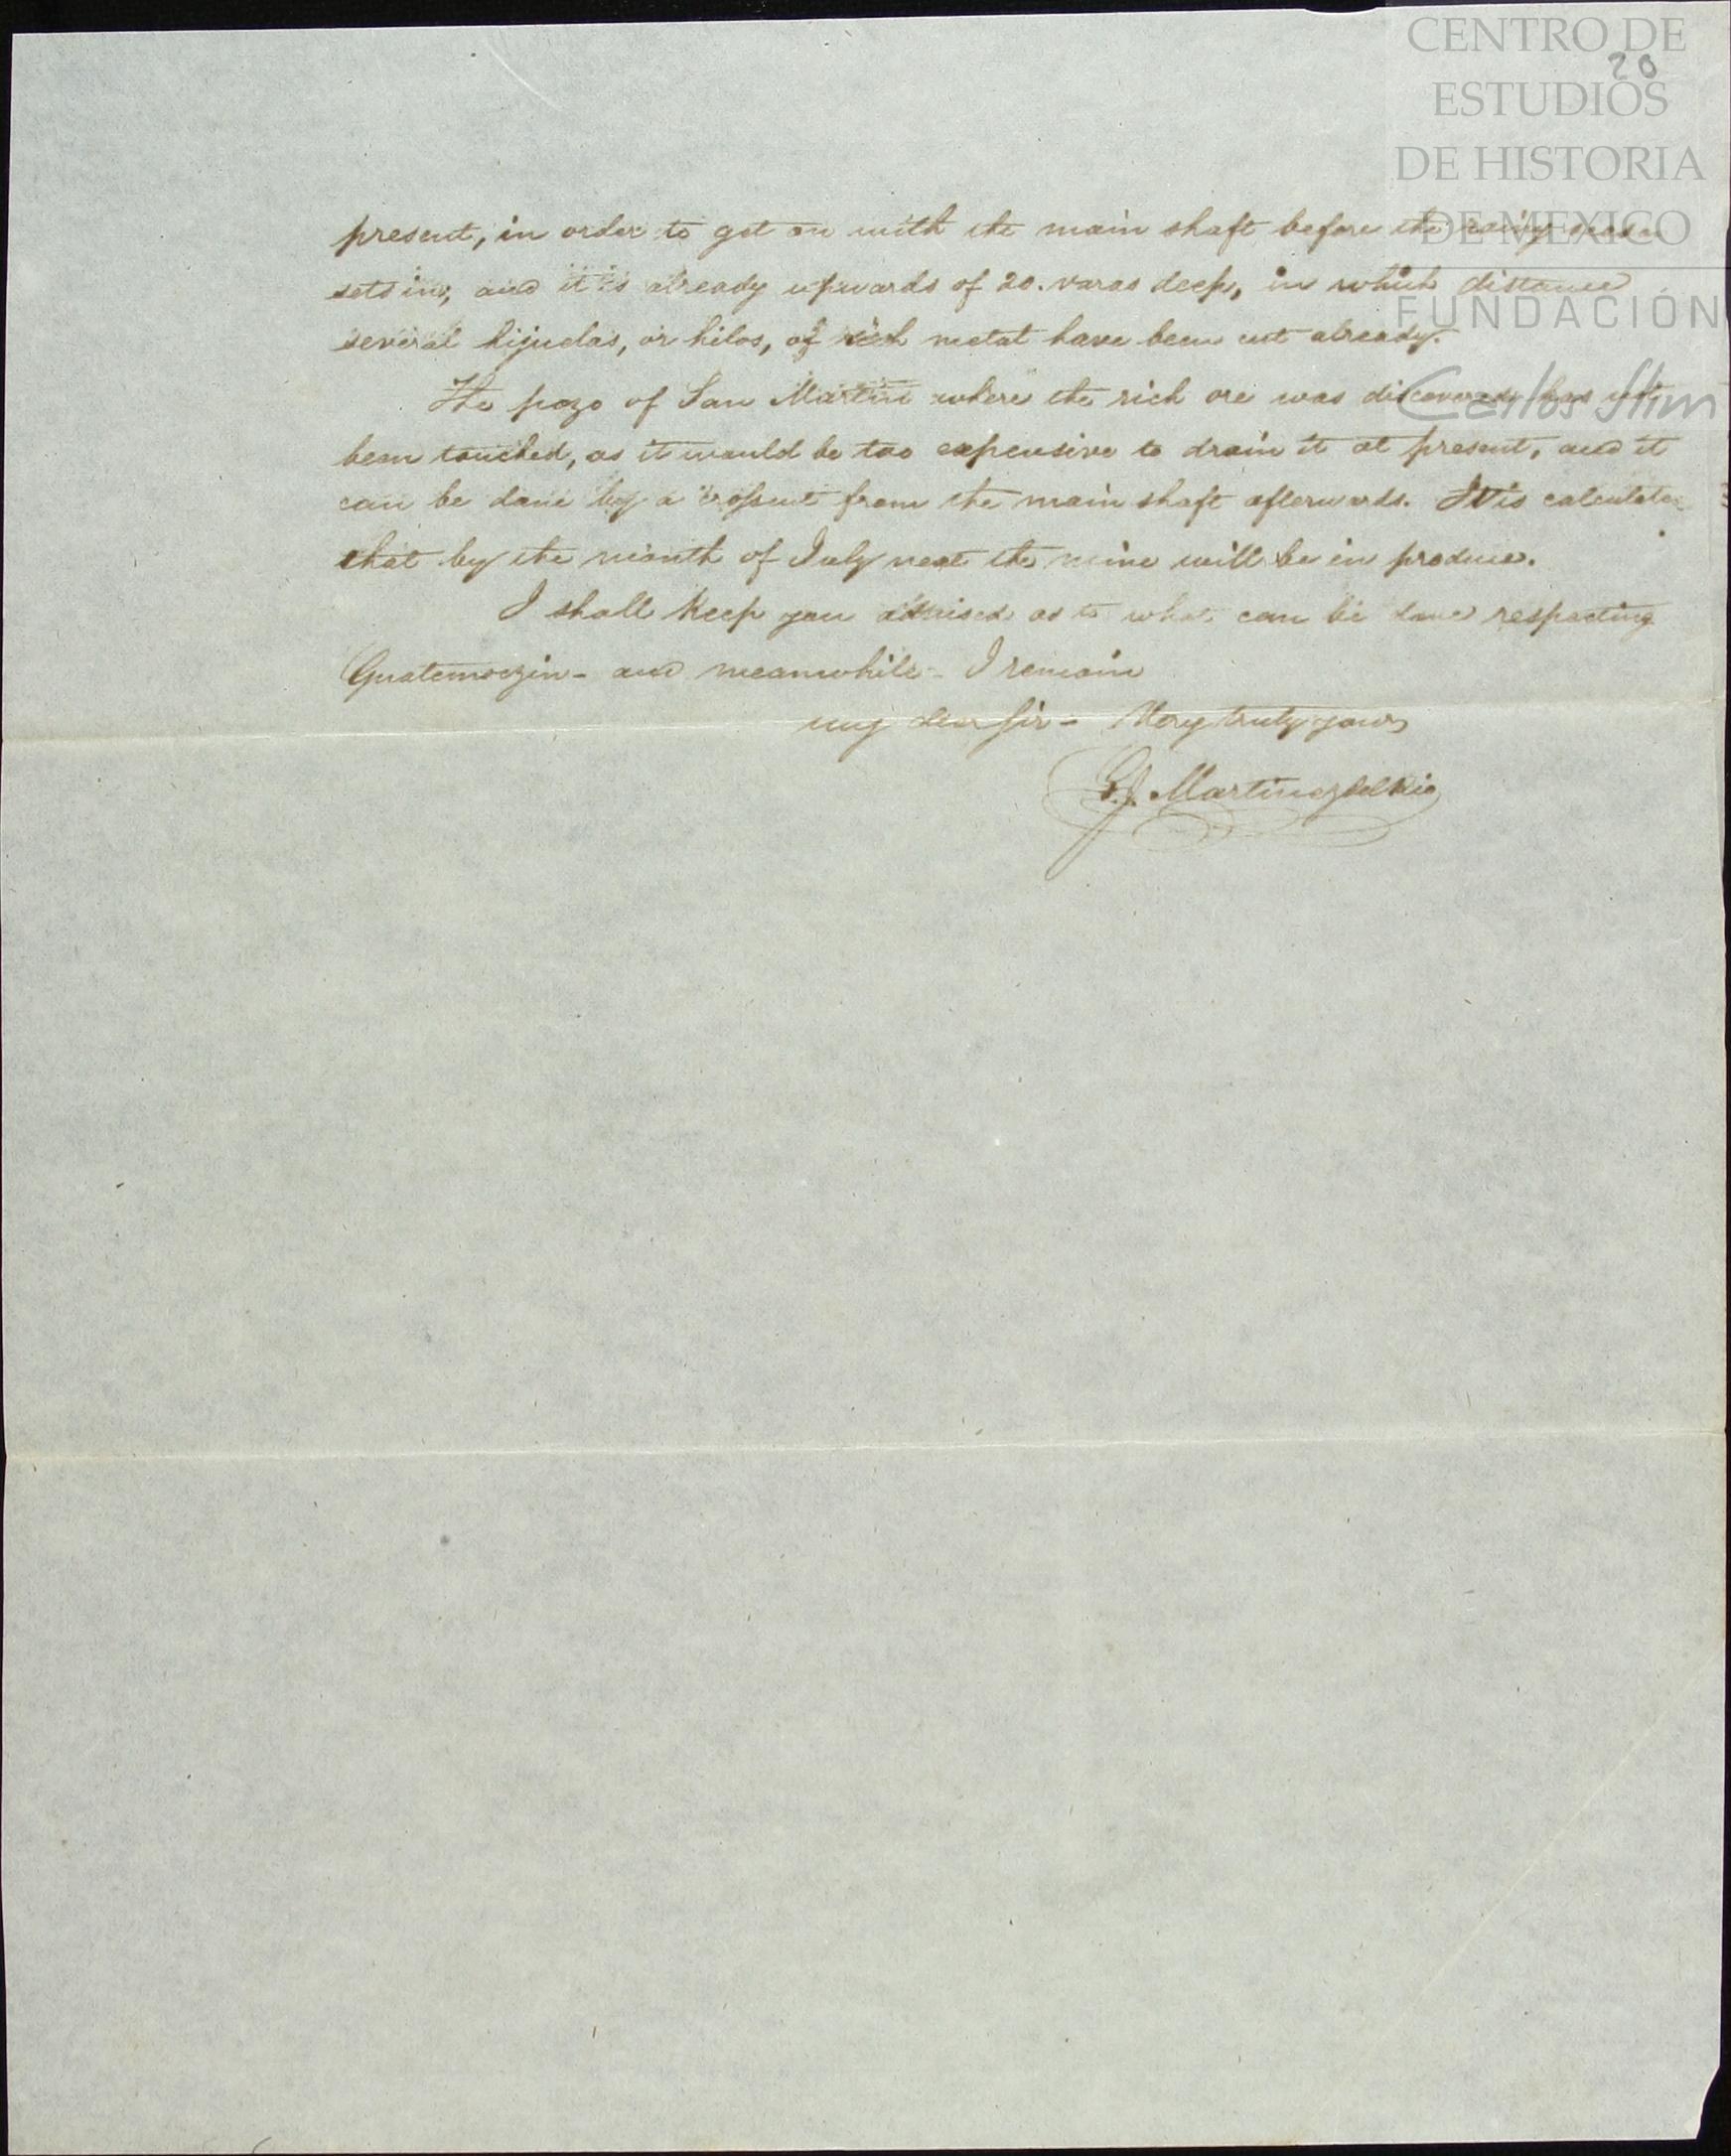 CENTRO DE
20
ESTUDIOS
DE HISTORIA
DE MEXICO
FUNDACIÓN
Carlos Slim
present, in order to get on with the main shaft before the rainy season
sets in, and it is already upwards of 20. varas deep, in which distance
several hijuelas, or hilos, of rich metal have been cut already.
The pozo of San Martin where the rich ore was discovered has not
been touched, as it would be too expensive to drain it at present, and it
can be done by a crosscut from the main shaft afterwards. It is calculated
that by the month of July next the mine will be in produce.
I shall keep you advised as to what can be done respecting
Guatemoczin - and meanwhile - I remain
my dear Sir - Very truly yours
G. J. Martinez del Rio